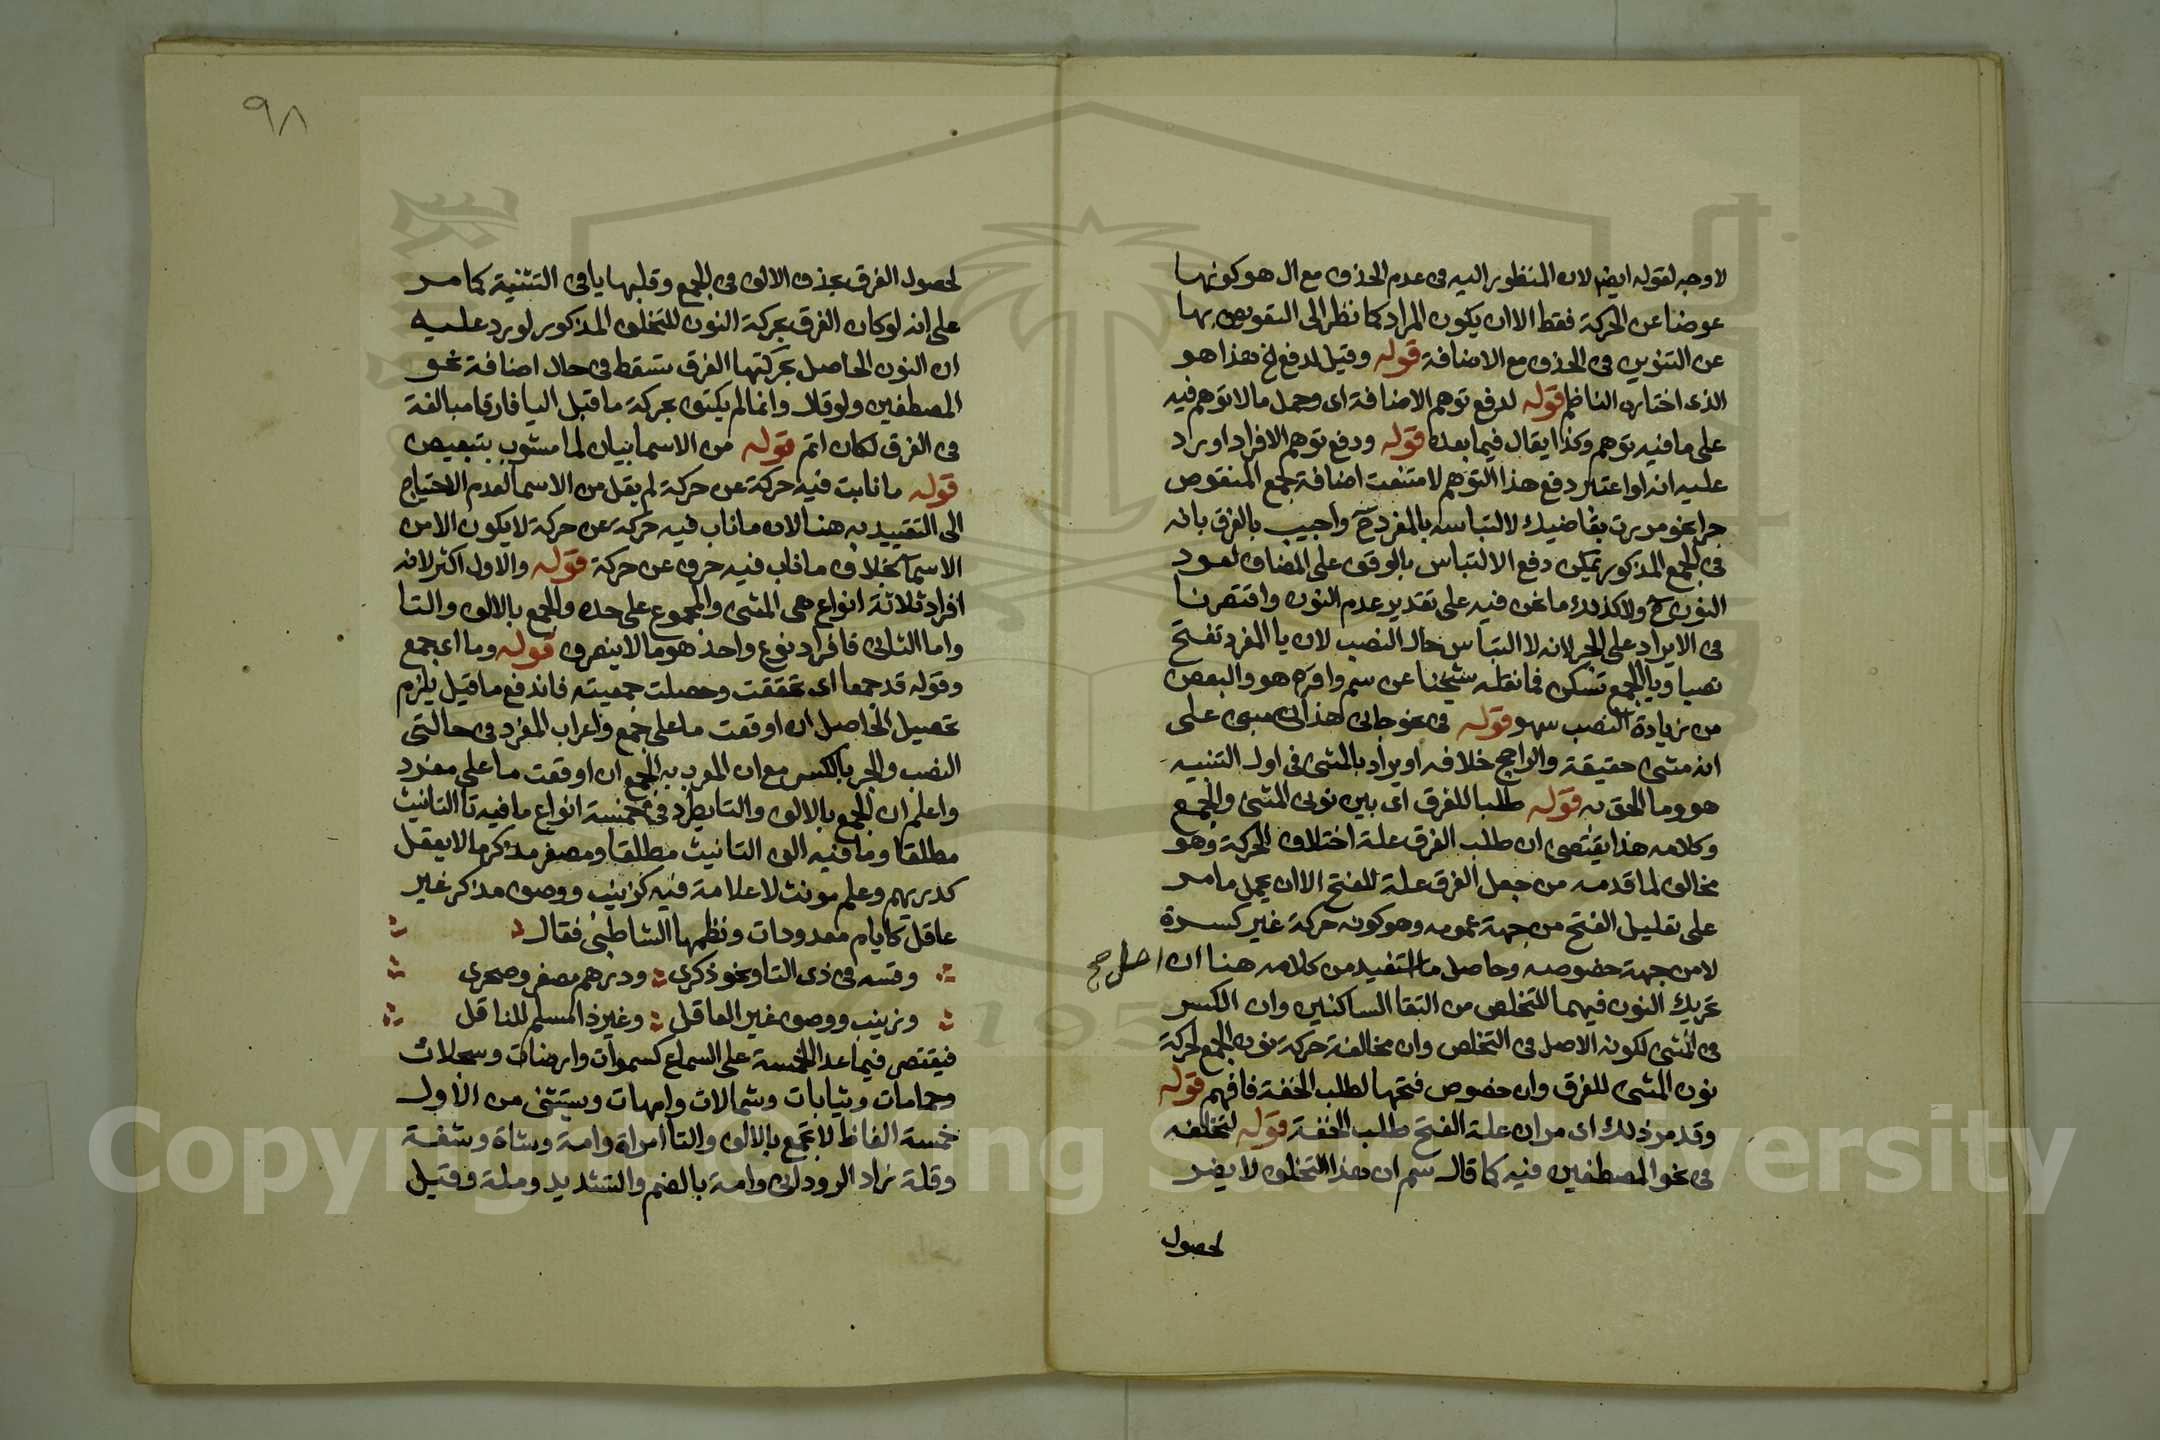 لا وجه لقوله ايضا لان المنظور اليه فى عدم الحذف مع ال هو كونها
عوضا عن الحركة فقط الا ان يكون المراد كما نظر الى التعويض بها
عن التنوين فى الحذف مع الاضافة قوله وقيل لدفع الخ هذا هو
الذى اختاره الناظم قوله لدفع توهم الاضافة اى وحمل ما لا توهم فيه
على ما فيه توهم وكذا يقال فيما بعده قوله ودفع توهم الافراد اورد
عليه انه لو اعتبر دفع هذا التوهم لامتنعت اضافة جمع المنقوص
جرا نحو مررت بقاضيك لالتباسه بالمفرد ح واجيب بالفرق بانه
فى الجمع المذكور يمكن دفع الالتباس بالوقف على المضاف لعود
النون ح ولا كذلك ما نحن فيه على تقدير عدم النون واقتصرنا
فى الايراد على الجر لانه لا التباس حال النصب لان يا المفرد تفتح
نصبا ويا الجمع تسكن فما نقله شيخنا عن سم واقره هو والبعض
من زيادة النصب سهو قوله فى نحو جانى هذان مبنى على
انه مثنى حقيقة والراجح خلافه او يراد بالمثنى فى اول التنبيه
هو وما الحق به قوله طلبا للفرق اى بين نونى المثنى والجمع
وكلامه هذا يقتضى ان طلب الفرق علة اختلاف الحركة وهو
مخالف لما قدمه من جعل الفرق علة للفتح الا ان يحمل ما مر
على تعليل الفتح من جهة عمومه وهو كونه حركة غير كسرة
لا من جهة خصوصه وحاصل ما استفيد من كلامه هنا ان اصل صح
تحريك النون فيهما للتخلص من التقا الساكنين وان الكسر
فى المثنى لكونه الاصل فى التخلص وان مخالفة حركة نون الجمع لحركة
نون المثنى للفرق وان خصوص فتحها لطلب الخفة فافهم قوله
وقد مر ذلك اى مر ان علة الفتح طلب الخفة قوله لتخلفه
فى نحو المصطفين فيه كما قال سم ان هذا التخلف لا يضر
لحصول
٩٨
لحصول الفرق بحذف الالف فى الجمع وقلبها يا فى التثنية كما مر
على انه لو كان الفرق بحركة النون للتخلف المذكور لورد عليه
ان النون الحاصل بحركتها الفرق تسقط فى حال اضافة نحو
المصطفين ولو قال وانما لم يكتف بحركة ما قبل اليا فارقا مبالغة
فى الفرق لكان اتم قوله من الاسما بيان لما مشوب بتبعيض
قوله ما نابت فيه حركة عن حركة لم يقل من الاسما لعدم الاحتياج
الى التقييد به هنا لان ما ناب فيه حركة عن حركة لا يكون الا من
الاسمآ بخلاف ما ناب فيه حرف عن حركة قوله والاول اكثر لانه
افراد ثلاثة انواع هى المثنى والمجموع على حده والجمع بالالف والتا
واما الثانى فافراد نوع واحد هو ما لا ينصرف قوله وما اى جمع
وقوله قد جمعا اى تحققت وحصلت جمعيته فاندفع ما قيل يلزم
تحصيل الحاصل ان اوقعت ما على جمع واعراب المفرد فى حالتى
النصب والجر بالكسر مع ان المعرب به الجمع ان اوقعت ما على مفرد
واعلم ان الجمع بالالف والتا يطرد فى خمسة انواع ما فيه تا التانيث
مطلقا وما فيه الف التانيث مطلقا ومصغر مذكر ما لا يعقل
كدريهم وعلم مونث لا علامة فيه كزينب ووصف مذكر غير
عاقل كايام معدودات ونظمها الشاطبى فقال
وقسه فى ذى التا ونحو ذكرى ودرهم مصغر وصحرى
وزينب ووصف غير العاقل وغير ذا مسلم للناقل
فيقتصر فيما عدا الخمسة على السماع كسموات وارضات وسجلات
وحمامات وثيابات وشمالات وامهات ويستثنى من الاول
خمسة الفاظ لا تجمع بالالف والتا امراة وامة وشاة وشفة
وقلة زاد الرودانى وامة بالضم والتشديد وملة وقيل